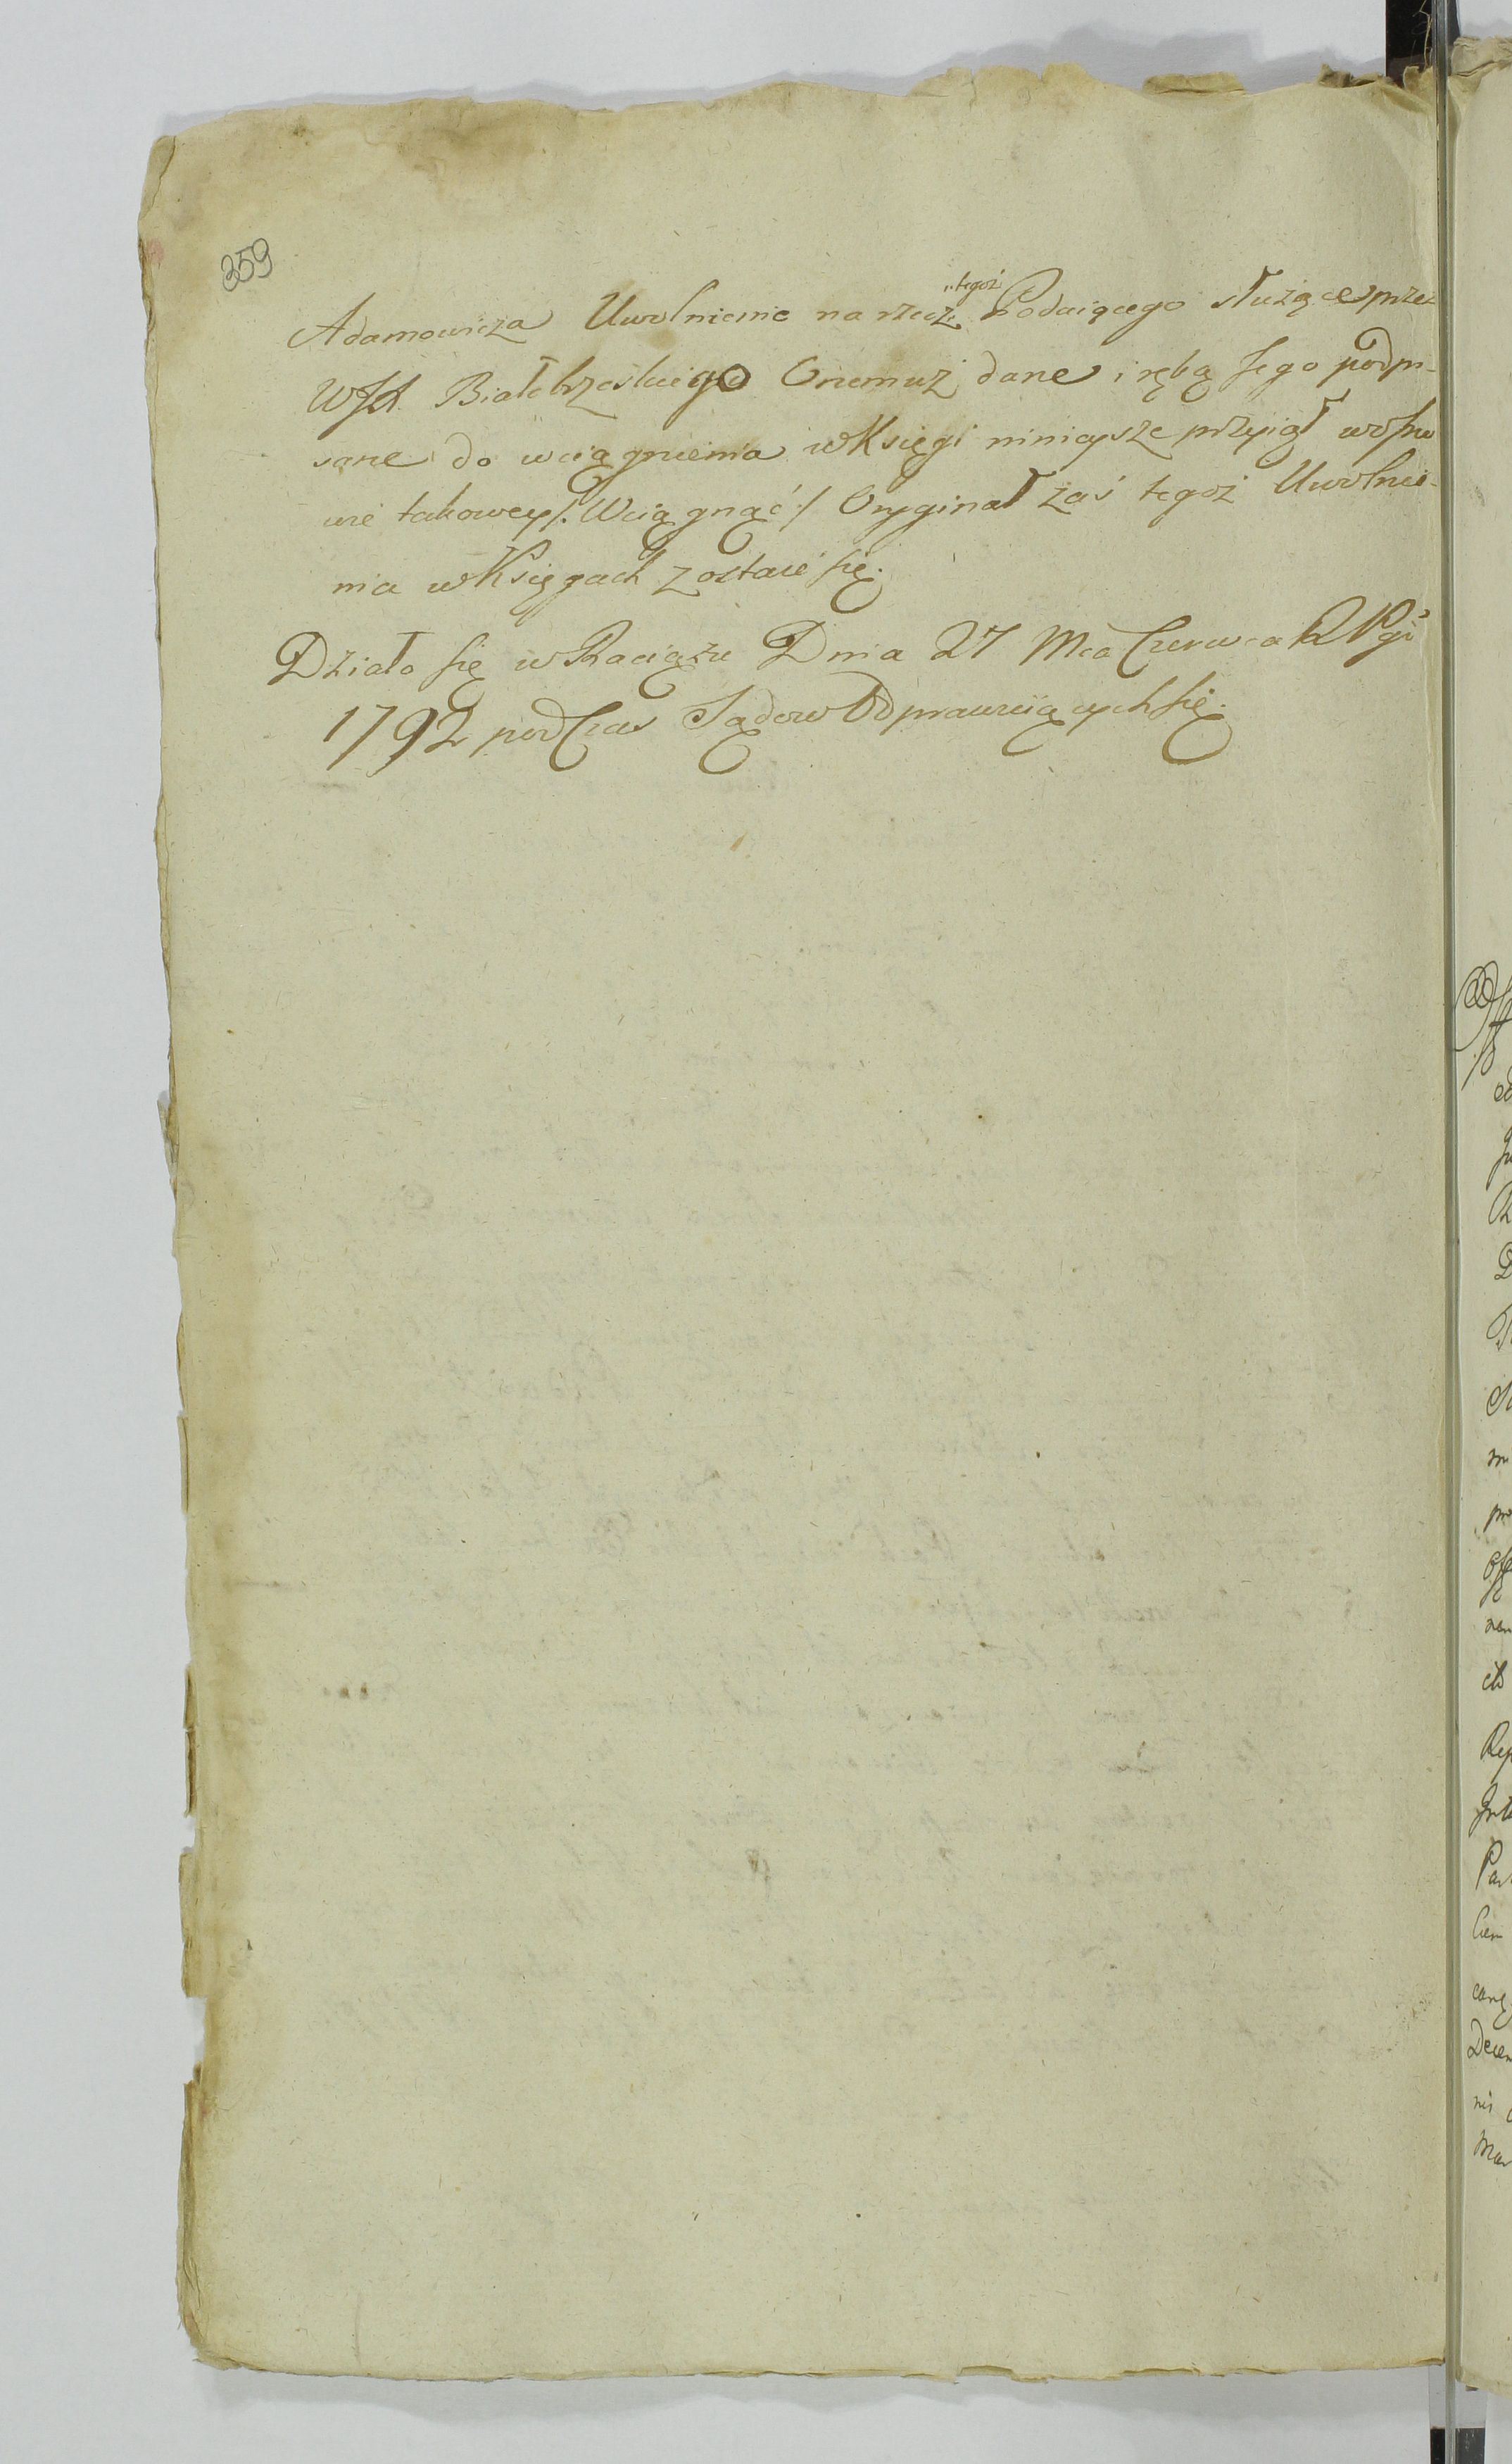 359
Adamowicza Uwolnienie na rzecz „tegoż Podaiącego służące przez
WJX Białobrzeskiego Onemuż dane i ręką Jego podpi-
sane do wciągnienia w Księgi ninieysze przyiął w osno
wie takowey /: Wciągnąć :/ Oryginał zaś tegoż Uwolnie-
nia w Księgach zostaie się.
Działo się w Raciążu Dnia 27 Mca Czerwca R Pgo
1792 podczas Sądow Odprawuiących się.